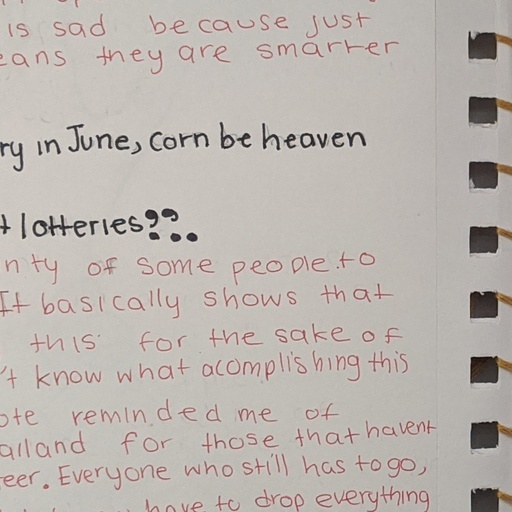 is sad because just
eans they are smarter
ry in June, corn be heaven
t lotteries??
nity of some people to
It basically shows that
this for the sake of
't know what acomplishing this
ote reminded me of
ailand for those that havent
eer. Everyone who still has to go,
have to drop everything